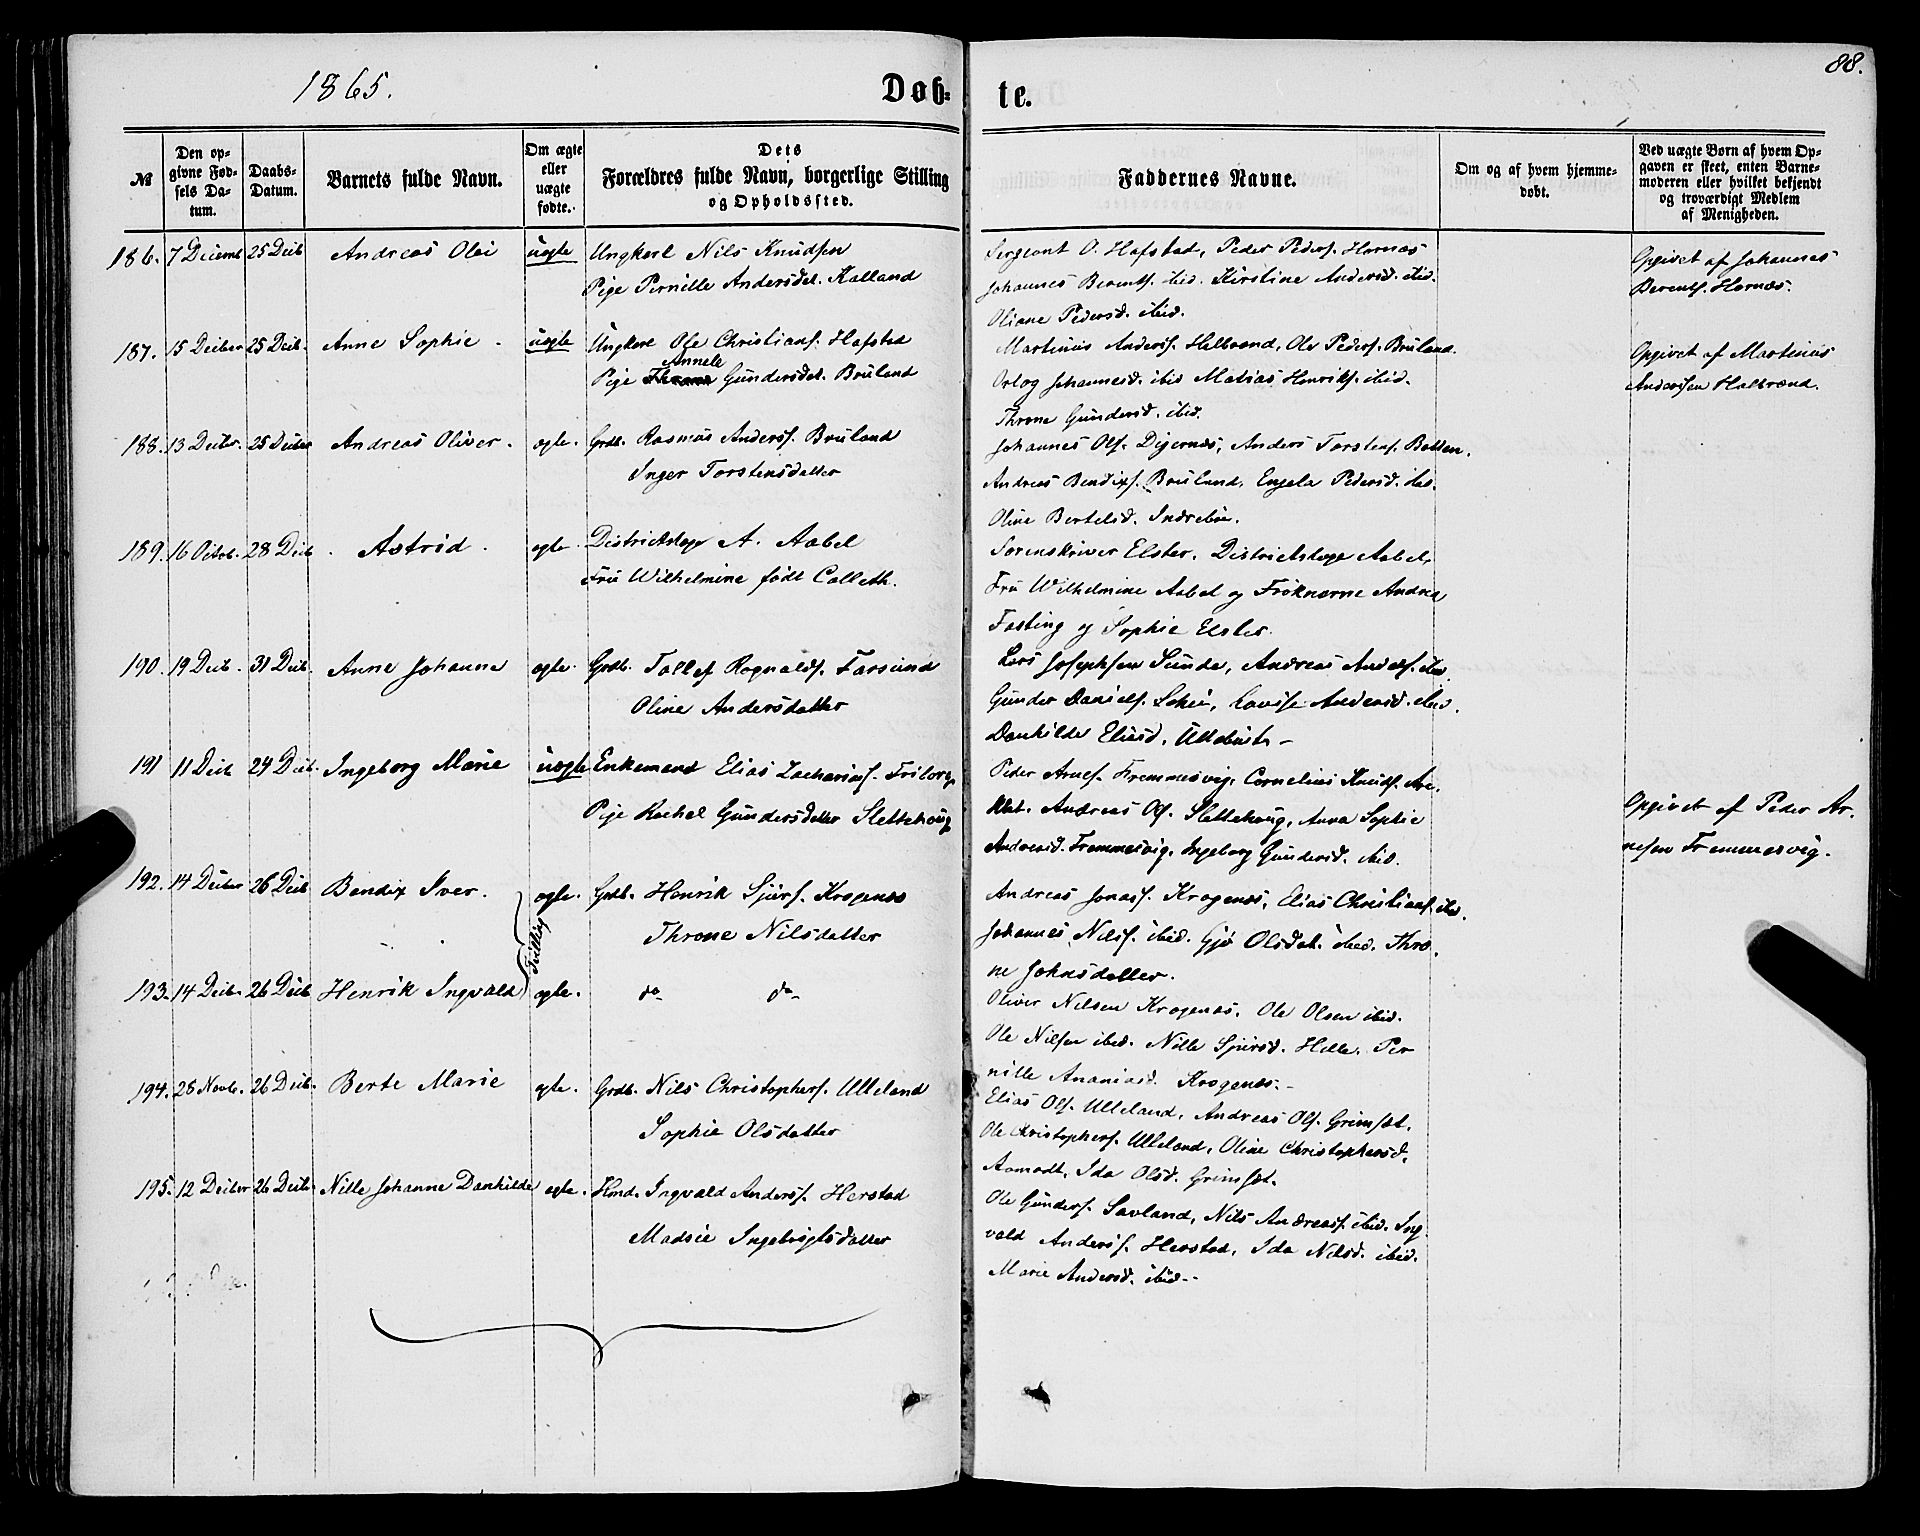 1865.
Døb-
te.
88.
№
Den op-
givne Fød-
sels Da-
tum.
Daabs-
Datum.
Barnets fulde Navn.
Om ægte
eller
uægte
fødte.
Dets
Forældres fulde Navn, borgerlige Stilling
og Opholdssted.
Faddernes Navne.
Om og af hvem hjemme-
døbt.
Ved uægte Børn af hvem Op-
gaven er skeet, enten Barne-
moderen eller hvilket bekjendt
og troværdigt Medlem
af Menigheden.
186. 7 Decemb 25 Decb Andreas Olai uægte Ungkarl Nils Knudsen
Pige Pernille Andersdat. Kalland
Sergeant O. Hafstad, Peder Peders. Hornæs
Johannes Berents. ibid. Kirstine Andersd. ibid.
Oliane Pedersd. ibid.
Opgivet af Johannes
Berents. Hornæs.
187. 15 Decber 25 Decb. Anne Sophie. uægte Ungkarl Ole Christians. Hafstad
Annele
Pige Gundersdat. Bruland
Martinus Anderss. Halbrænd, Ole Peders. Bruland.
Johannesd. ibid Matias Henriks. ibid.
Throne Gundersd. ibid.
Opgivet af Martinus
Anderssen Halbrænd.
188. 13 Decber. 25 Decber Andreas Oliver. ægte. Grdb. Rasmus Anderss. Bruland
Inger Torstensdatter
Johannes Ols. Digernæs, Anders Torstens. Botten.
Andreas Bendixs. Bruland, Engela Pedersd. ibid.
Oline Bertelsd. Indrebøe.
189. 16 Octob. 28 Decb. Astrid. ægte. Districtslæge A. Aabel
Fru Wilhelmine født Colleth.
Sorenskriver Elster, Districtslæge Aabel,
Fru Wilhelmine Aabel og Frøknerne Andrea
Fasting og Sophie Elster.
190. 19 Decb. 31 Decb. Anne Johanne ægte. Grdb. Tollef Rognalds. Farsund
Oline Andersdatter
Lars Josephsen Sunde, Andreas Anders. ibid.
Gunder Daniels. Lovise Andersd. ibid.
Danhilde Eliasd. Ullebust.
191 11 Decb 24 Decb. Ingeborg Marie uægte Enkemand Elias Zacharias.
Pige Rachel Gundersdatter Slettehoug
Peder Arnes. Fremmesvig, Cornelius Knuds.
Andreas Ols. Slettehoug, Anna Sophie
Andersd. Fremmesvig, Ingeborg Gundersd. ibid.
Opgivet af Peder Ar-
nesen Fremmesvig.
192. 14 Decber 26 Decb Bendix Iver. ægte. Grdb. Henrik Sjurs. Krogenæs
Throne Nilsdatter
Tvilling
Andreas Jonass. Krogenæs, Elias Christians. ibid.
Johannes Nils. ibid. Gjø Olsdat. ibid. Thro-
ne Johnsdatter.
193. 14 Decb. 26 Decb Henrik Ingvald ægte. do do
Oliver Nilsen Krogenæs. Ole Olsen ibid.
Ole Nilsen ibid. Nille Sjursd. Helle. Per
nille Ananiasd. Krogenæs.
194. 28 Novb. 26 Decb. Berte Marie ægte. Grdb. Nils Christophers. Ulleland
Sophie Olsdatter
Elias Ols. Ulleland, Andreas Ols. Grimset.
Ole Christophers. Ulleland, Oline Christophersd.
Aamodt, Ida Olsd. Grimset.
195. 12 Decber 26 Decber Nille Johanne Danhilde ægte. Hmd. Ingvald Anderss. Herstad
Madsie Ingebrigtsdatter
Ole Gunders. Savland, Nils Andreass. ibid. Ing
vald Anderss. Herstad, Ida Nilsd. ibid.
Marie Andersd. ibid.